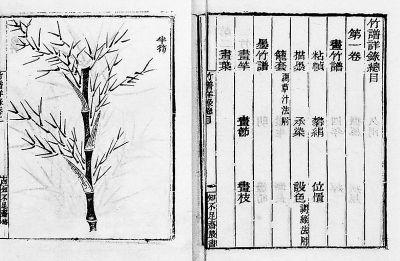 竹譜詳錄總目
第一卷
畫竹譜
粘幀 礬絹 位置
描墨 承染 設色 調綠法附
籠套 調草汁法附
墨竹譜
畫竿 畫節 畫枝
畫葉
竹譜詳錄總目 一 知不足齋叢書